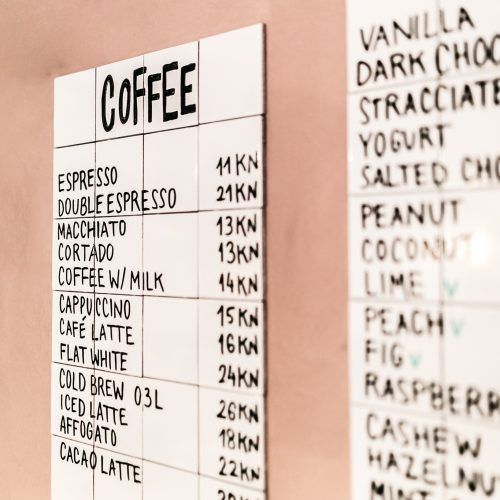 COFFEE
ESPRESSO 11KN
DOUBLE ESPRESSO 21KN
MACCHIATO 13KN
CORTADO 13KN
COFFEE W/ MILK 14KN
CAPPUCCINO 15KN
CAFÉ LATTE 16KN
FLAT WHITE 24KN
COLD BREW 03L 26KN
ICED LATTE 18KN
AFFOGATO 22KN
CACAO LATTE
VANILLA
DARK CHOC
STRACCIATE
YOGURT
SALTED CHO
PEANUT
COCONUT
LIME
PEACH
FIG
RASPBERR
CASHEW
HAZELNU